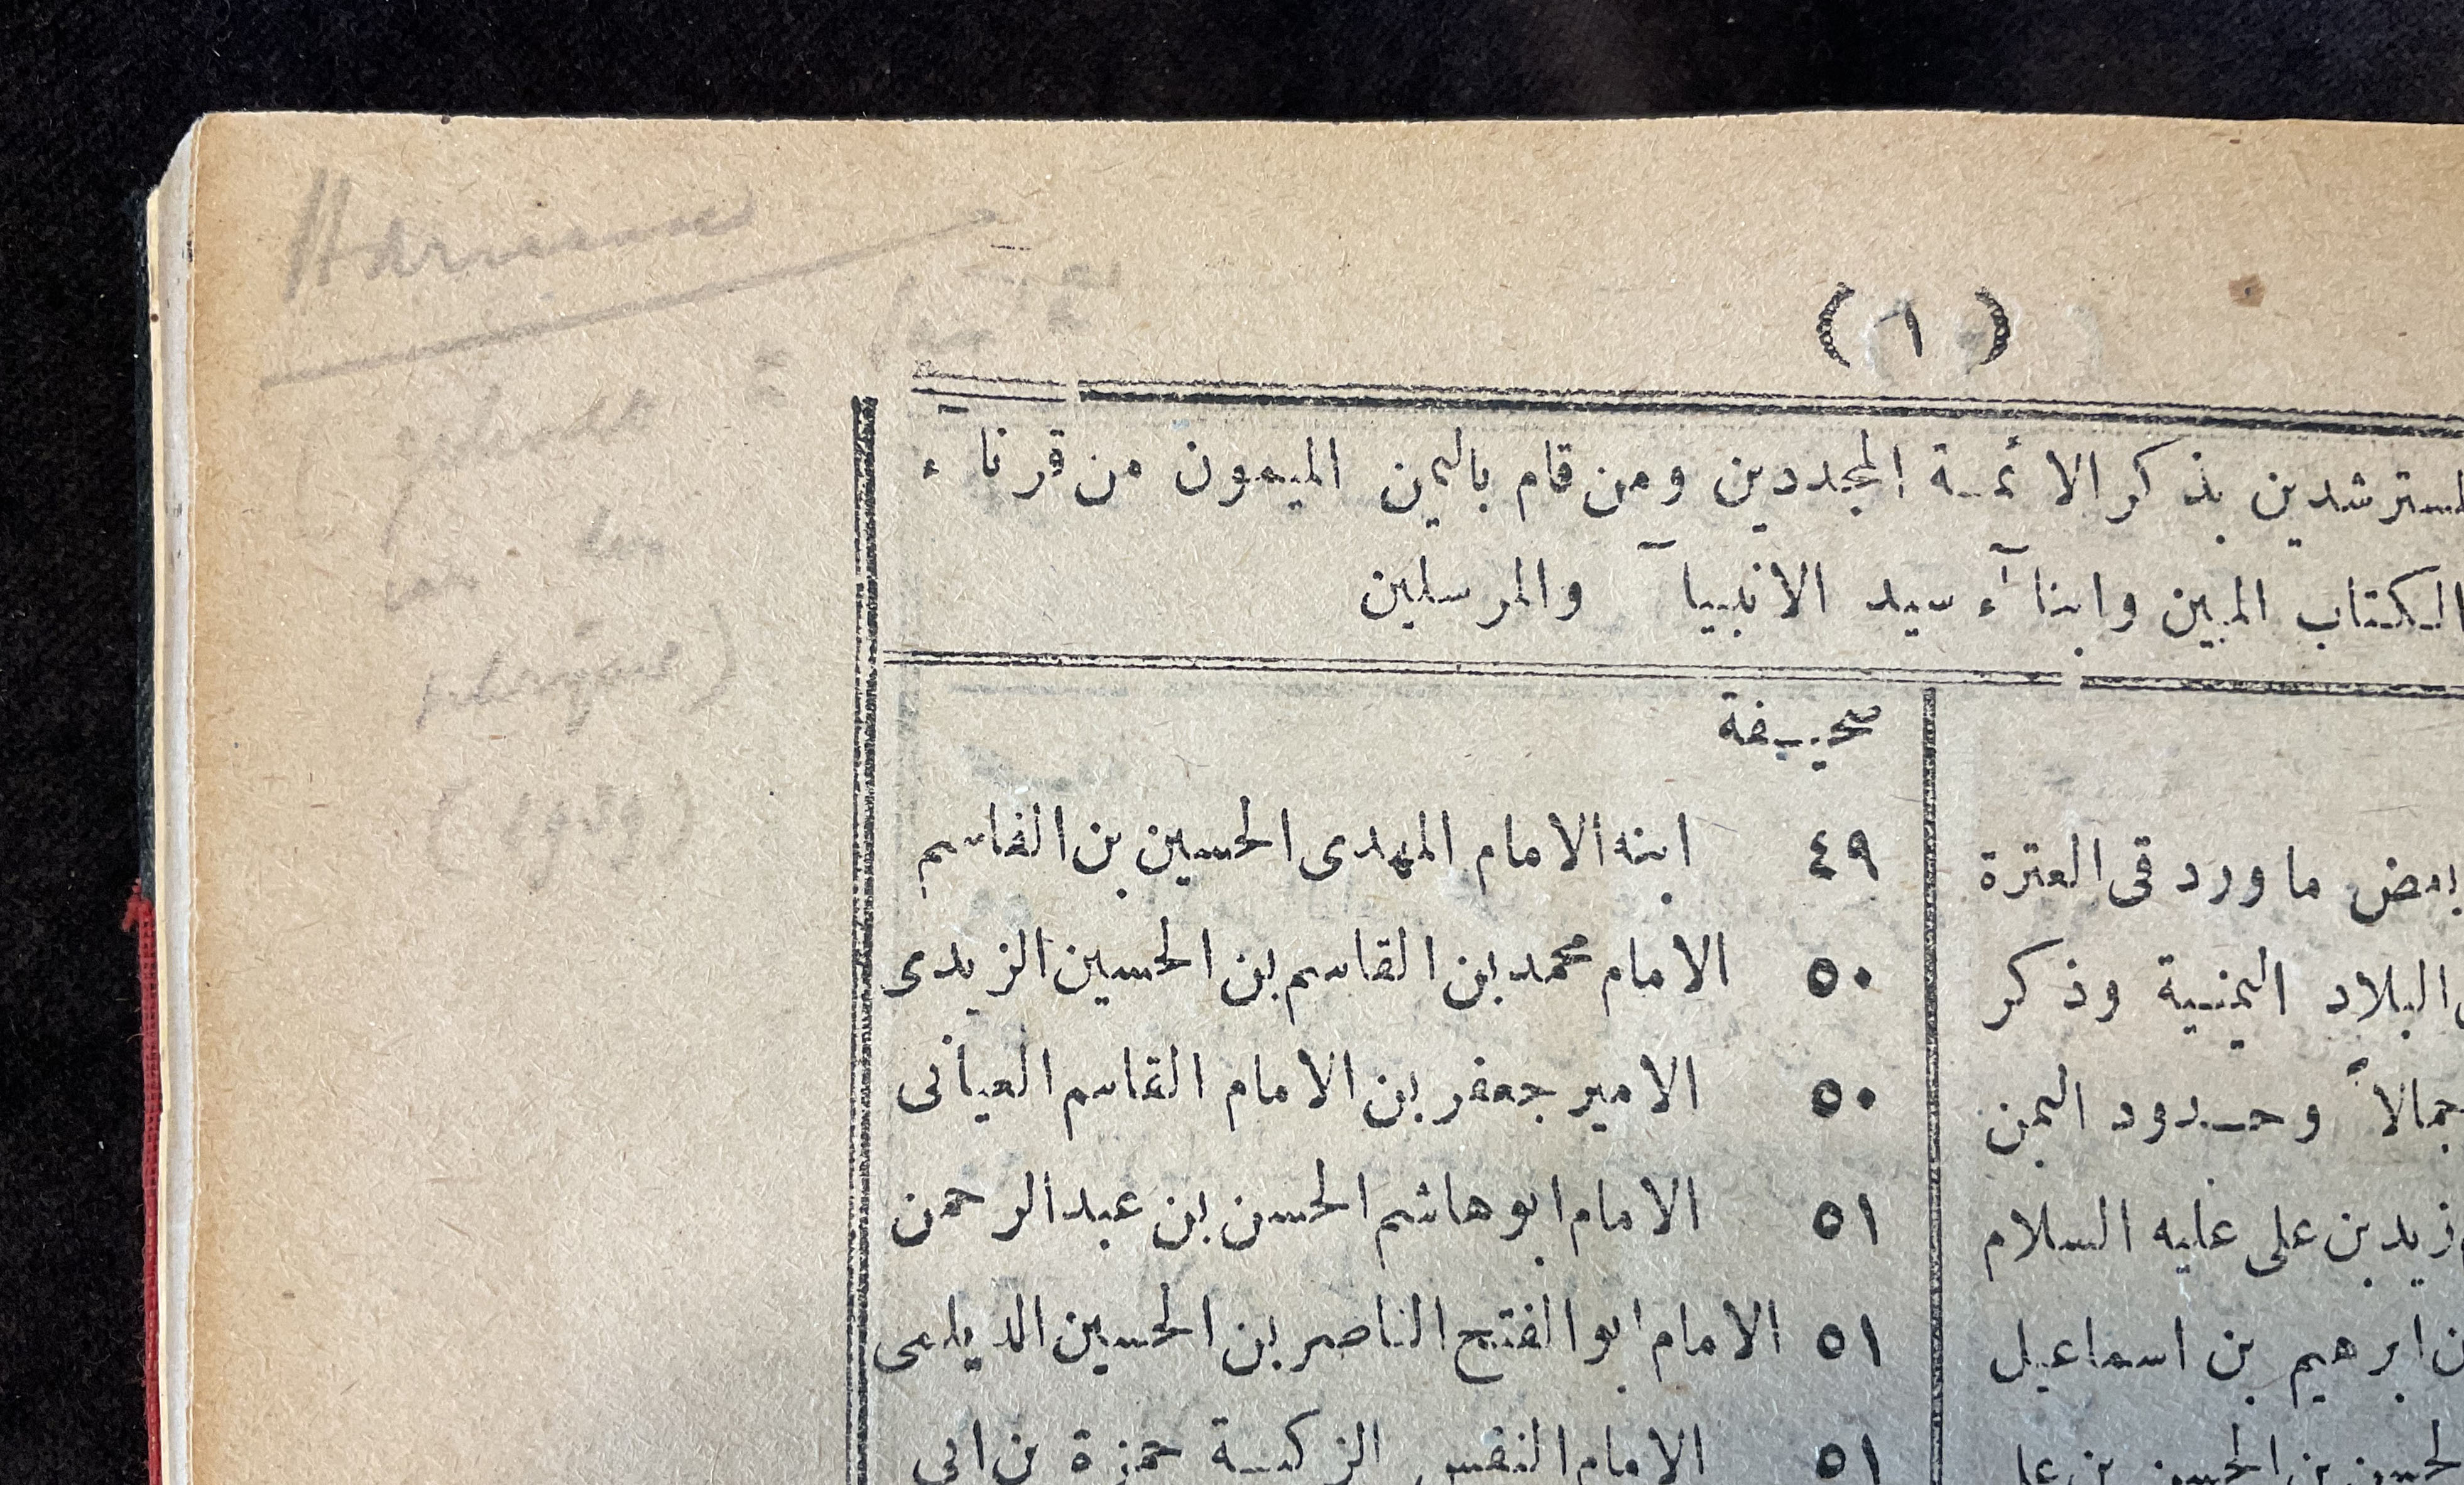 (١)
بذكر الائمة المجددين ومن قام باليمن الميمون من قرناء
الكتاب المبين وابناء سيد الانبيا والمرسلين
بعض ما ورد فى العترة
البلاد اليمنية وذكر
وحدود اليمن
زيد بن على عليه السلام
ابرهيم بن اسماعيل
صحيفة
٤٩ ابنه الامام المهدى الحسين بن القاسم
٥٠ الامام محمد بن القاسم بن الحسين الزيدى
٥٠ الامير جعفر بن الامام القاسم العيانى
٥١ الامام ابو هاشم الحسن بن عبد الرحمن
٥١ الامام ابو الفتح الناصر بن الحسين الديلمى
٥١ الامام النفس الزكية حمزة بن ابى